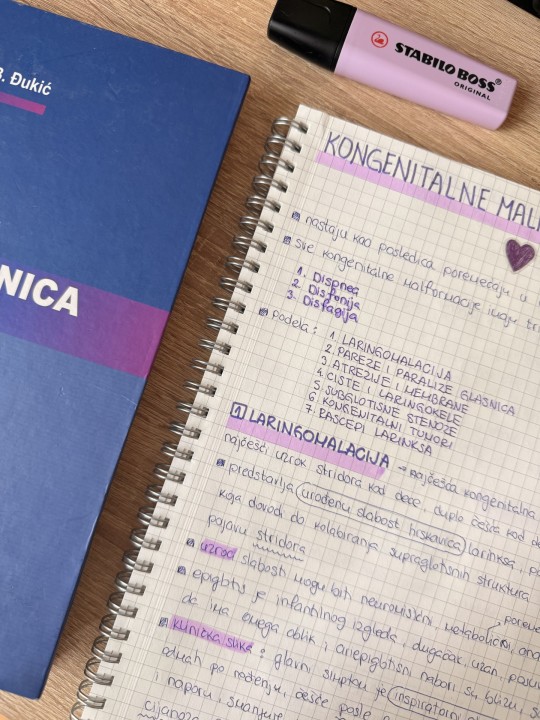 B. Đukić
NICA
STABILO BOSS®
ORIGINAL
KONGENITALNE MAL
nastaju kao posledica poremećaja u
sve kongenitalne malformacije imaju
1. Dispnea
2. Disfonija
3. Disfagija
podela:
1. LARINGOMALACIJA
2. PAREZE I PARALIZE GLASNICA
3. ATREZIJE I MEMBRANE
4. CISTE I LARINGOKELE
5. SUBGLOTISNE STENOZE
6. KONGENITALNI TUMORI
7. RASCEPI LARINKSA
1 LARINGOMALACIJA → najčešća kongenitalna
najčešći uzrok stridora kod dece, duplo češća kod
predstavlja urođenu slabost hrskavica larinksa,
koja dovodi do kolabiranja supraglotisnih struktura
pojavu stridora
uzroci slabosti mogu biti neuromišićni, metabolički,
epiglotis je infantilnog izgleda, dugačak, uzan,
da ima omega oblik i ariepiglotisni nabori su blizu,
klinička slika: glavni simptom je inspiratorni
odmah po rođenju, češće posle
i naporu, smanjuje
cijanoza